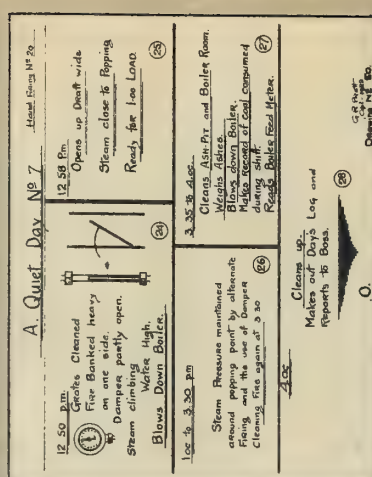 A. Quiet Day Nº 7
Hand Firing Nº 20
12 50 p.m.
Grates Cleaned
Fire Banked heavy
on one side.
Damper partly open.
Steam climbing
Water High.
Blows Down Boiler.
24
12 58 Pm
Opens up Draft wide
Steam close to Popping
Ready for 1-00 LOAD.
25
1 oc to 3.30 pm
Steam Pressure maintained
around popping point by alternate
Firing and the use of Damper
Cleaning Fire again at 3 30
26
3 35 to 4 oc
Cleans ASH-PIT and Boiler Room.
Weighs Ashes.
Blows down Boiler.
Makes Record of Coal Consumed
during shift.
Reads Boiler Feed Meter.
27
4 oc
Cleans up.
Makes out Days Log and
Reports to Boss.
28
O.
Drawing Nº 80.